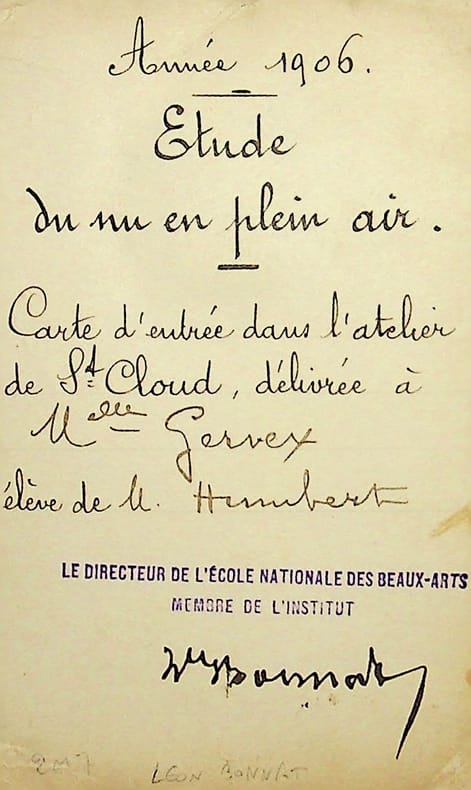 Année 1906.
Etude
du nu en plein air.
Carte d'entrée dans l'atelier
de St Cloud, délivrée à
Melle Gervex
élève de M. Humbert
LE DIRECTEUR DE L'ÉCOLE NATIONALE DES BEAUX-ARTS
MEMBRE DE L'INSTITUT
Ln Bonnat
LÉON BONNAT